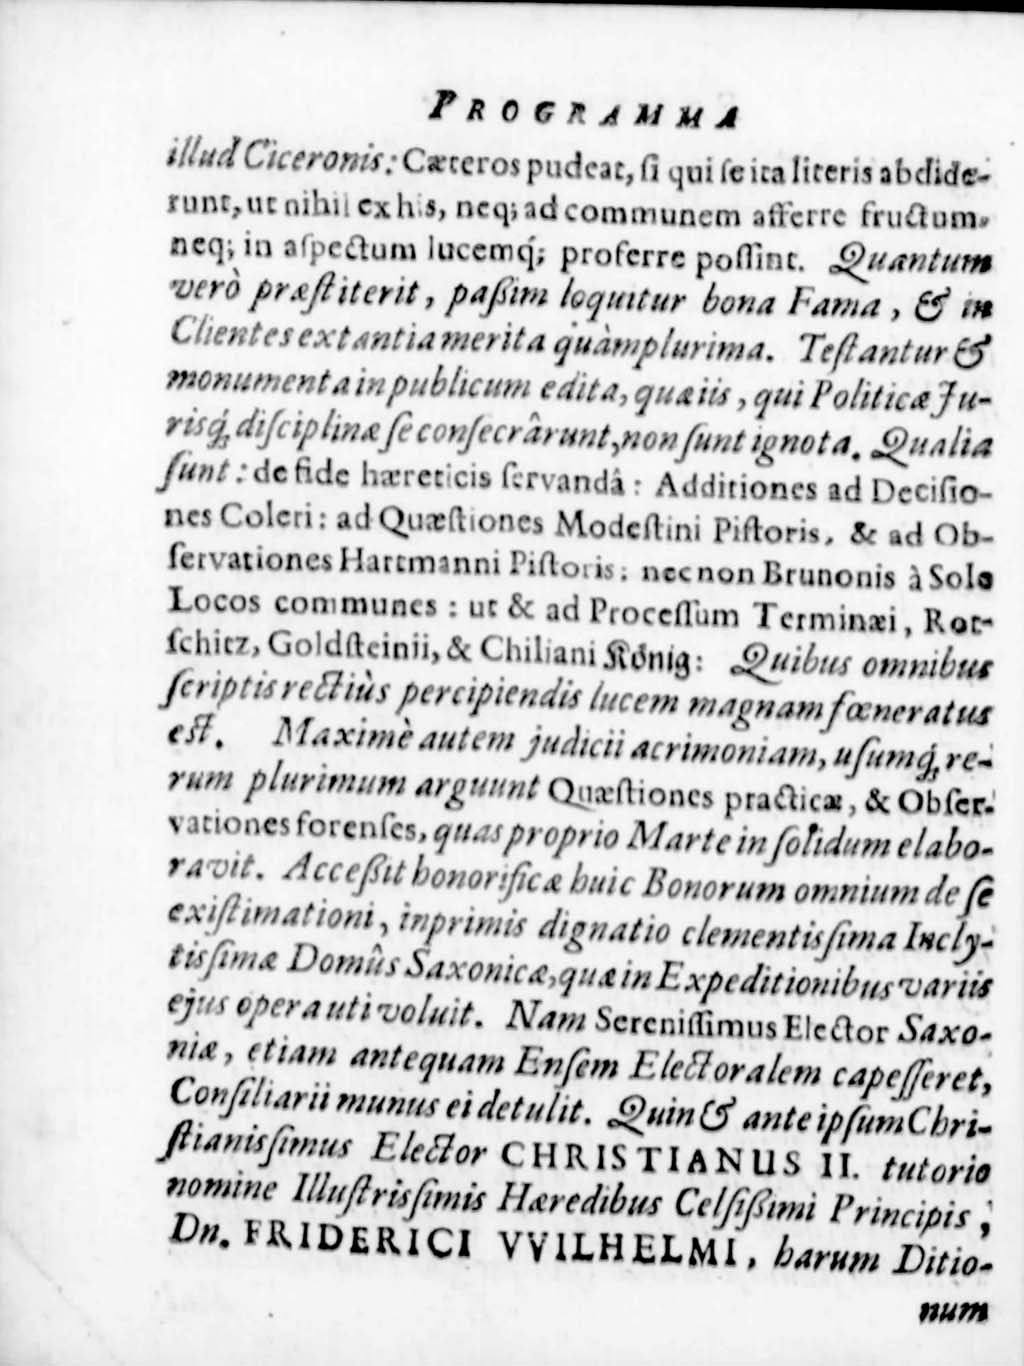 PROGRAMMA
illud Ciceronis: Cæteros pudeat, ſi qui ſe ita literis abdide-
runt, ut nihil ex his, neq; ad communem afferre fructum,
neq; in aſpectum lucemq́; proferre poſſint. Quantum
verò præſtiterit, paßim loquitur bona Fama, & in
Clientes extantia merita quàmplurima. Teſtantur &
monumenta in publicum edita, quæ iis, qui Politicæ Ju-
risq́; diſciplinæ ſe conſecrârunt, non ſunt ignota. Qualia
ſunt: de fide hæreticis ſervandâ: Additiones ad Deciſio-
nes Coleri: ad Quæſtiones Modeſtini Piſtoris, & ad Ob-
ſervationes Hartmanni Piſtoris: nec non Brunonis à Sole
Locos communes: ut & ad Proceſſum Terminæi, Rot-
ſchitz, Goldſteinii, & Chiliani König: Quibus omnibus
ſcriptis rectiùs percipiendis lucem magnam fœneratus
eſt. Maximè autem judicii acrimoniam, uſumq́; re-
rum plurimum arguunt Quæſtiones practicæ, & Obſer-
vationes forenſes, quas proprio Marte in ſolidum elabo-
ravit. Acceßit honorificæ huic Bonorum omnium de ſe
exiſtimationi, inprimis dignatio clementisſima Incly-
tisſimæ Domûs Saxonicæ, quæ in Expeditionibus variis
ejus opera uti voluit. Nam Sereniſſimus Elector Saxo-
niæ, etiam antequam Enſem Electoralem capeſſeret,
Conſiliarii munus ei detulit. Quin & ante ipſum Chri-
ſtianisſimus Elector CHRISTIANUS II. tutorio
nomine Illuſtrisſimis Hæredibus Celſißimi Principis,
Dn. FRIDERICI VVILHELMI, harum Ditio-
num